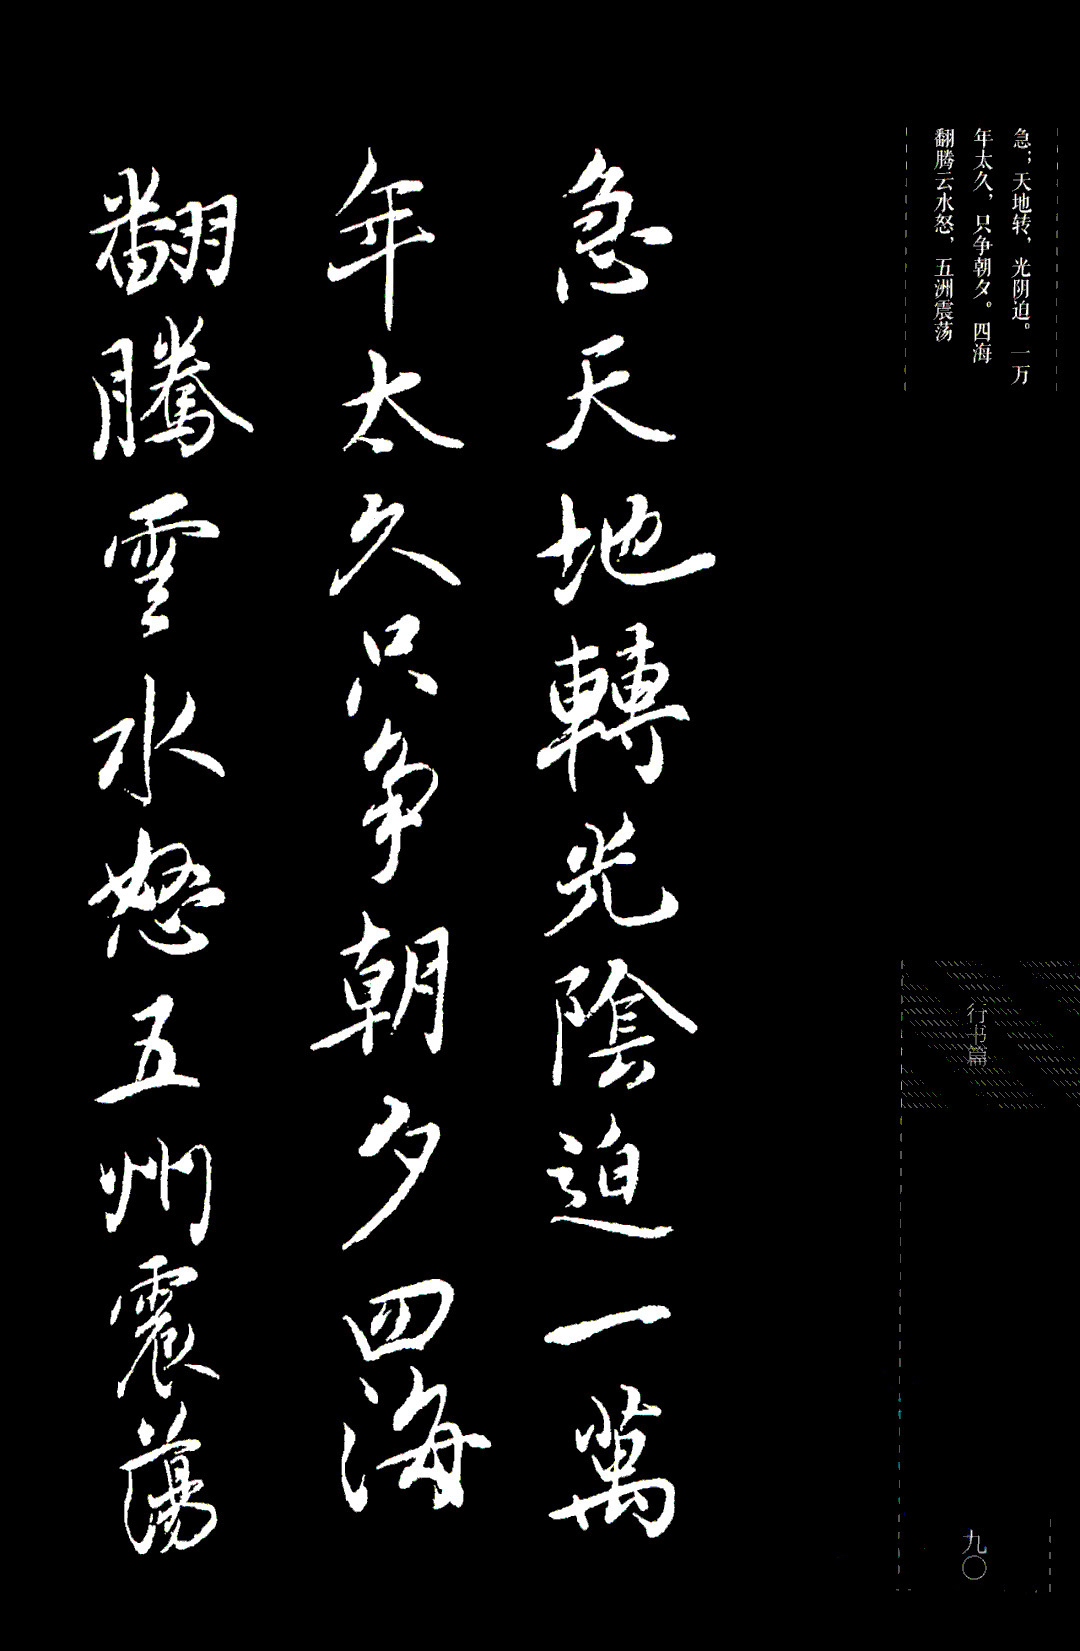 急；天地转，光阴迫。一万
年太久，只争朝夕。四海
翻腾云水怒，五洲震荡
急天地轉光陰迫一萬
年太久只争朝夕四海
翻騰雲水怒五州震蕩
行书篇
九〇